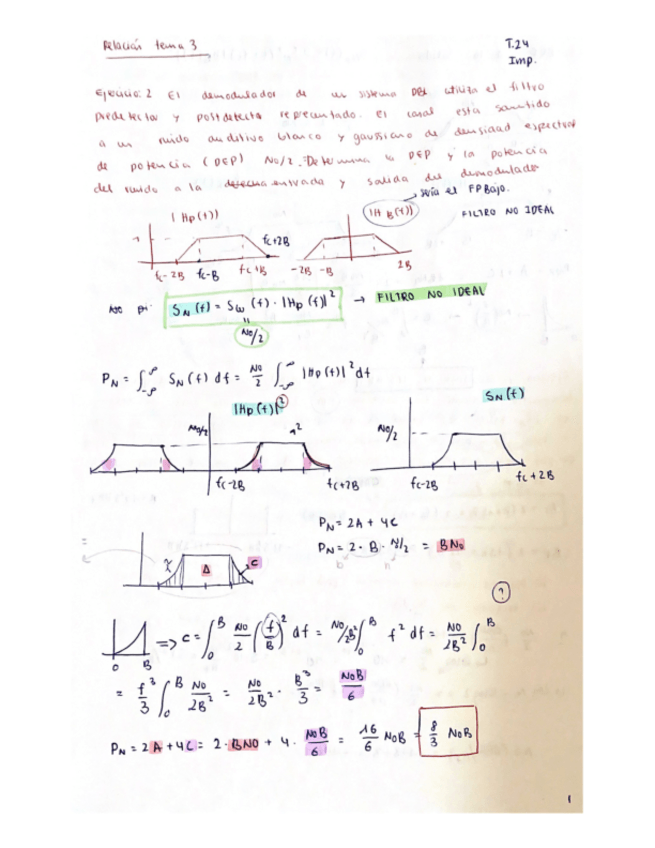 Relación tema 3
T.24
Imp.
Ejercicio: 2 El demodulador de un sistema DBL utiliza el filtro
predetector y postdetector representado. El canal está sometido
a un ruido auditivo blanco y gaussiano de densidad espectral
de potencia (DEP) No/2. Determina la DEP y la potencia
del ruido a la entrada y salida del demodulador
→ sería el FPBajo.
|Hp(f)| |HB(f)| FILTRO NO IDEAL
1 fc+2B
fc-2B fc-B fc+B -2B -B 2B
SN(f) = Sw(f) · |Hp(f)|² → FILTRO NO IDEAL
No/2
PN = ∫ SN(f) df = No/2 ∫ |Hp(f)|² df
|Hp(f)|² SN(f)
No/2 1² No/2
fc-2B fc+2B fc-2B fc+2B
PN = 2A + 4C
PN = 2 · B · N/2 = BNo
b
A C
?
0 B => C = ∫₀ᴮ No/2 (f/B)² df = No/2B² ∫₀ᴮ f² df = No/2B² ∫₀ᴮ
= f³/3 ∫₀ᴮ No/2B² = No/2B² · B³/3 = NoB/6
PN = 2A + 4C = 2 · BNO + 4 · NoB/6 = 16/6 NoB = 8/3 NoB
1